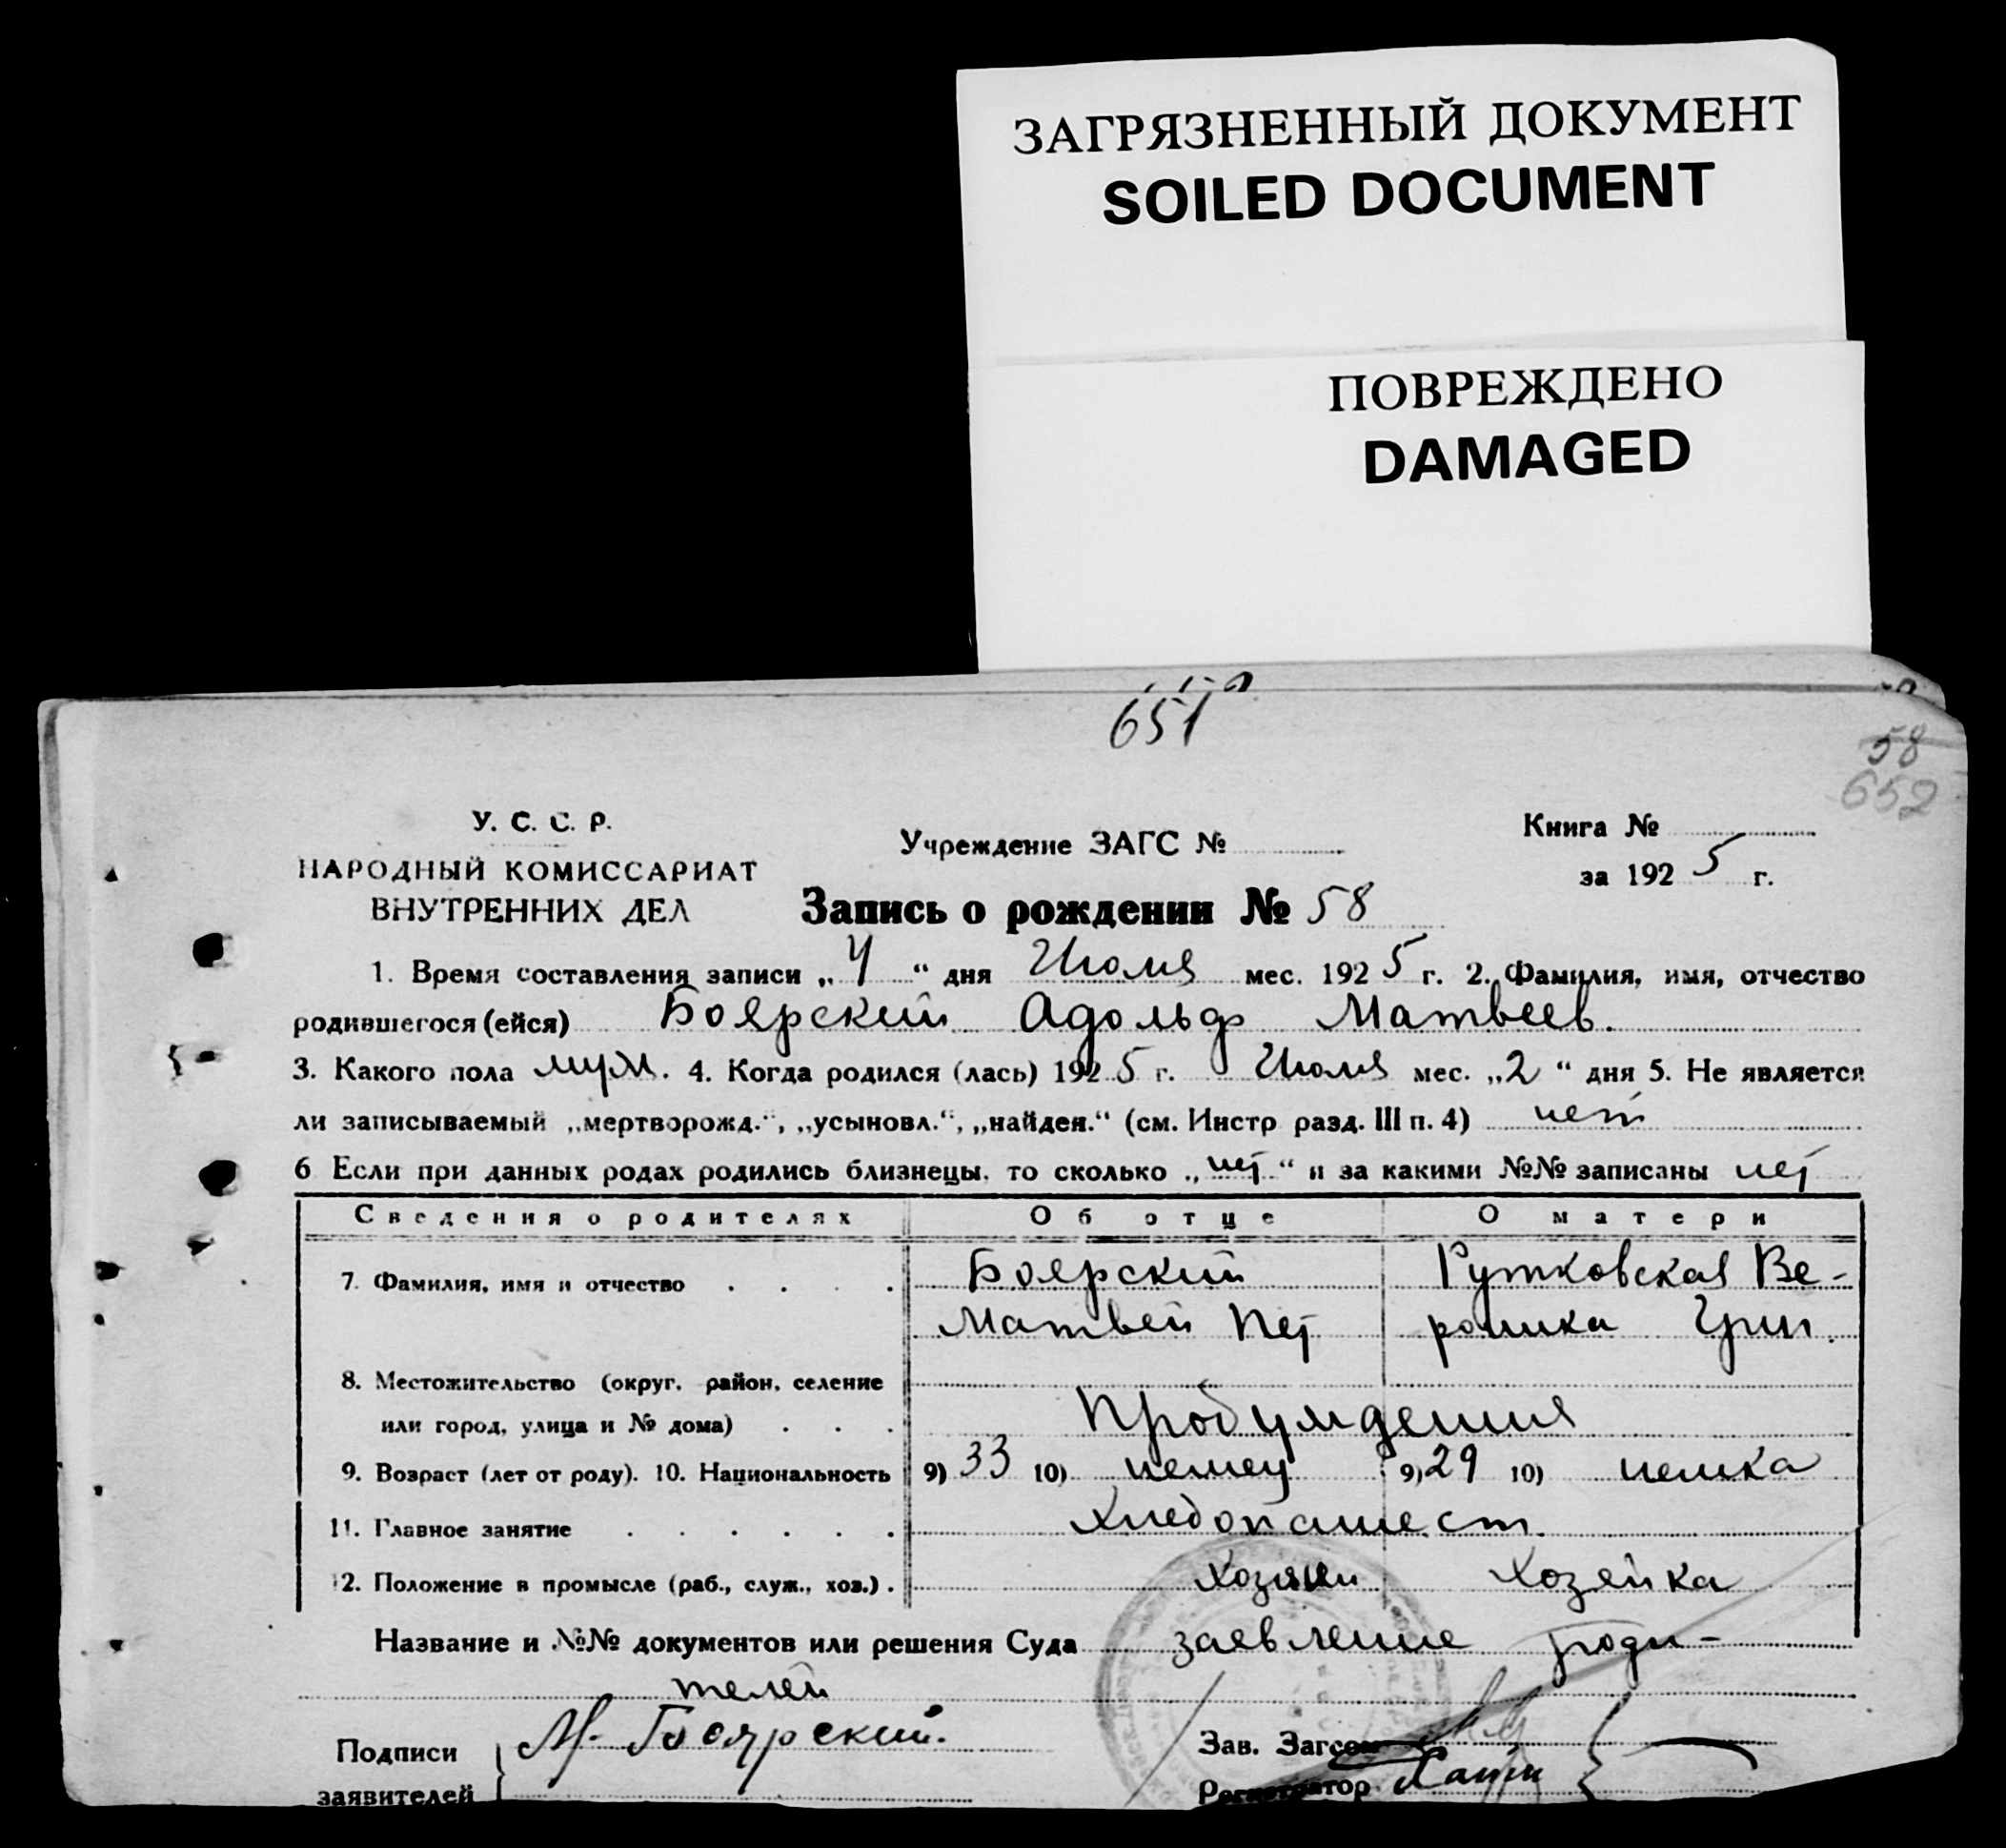 ЗАГРЯЗНЕННЫЙ ДОКУМЕНТ
SOILED DOCUMENT
ПОВРЕЖДЕНО
DAMAGED
651
58
652
У. С. С. Р.
НАРОДНЫЙ КОМИССАРИАТ
ВНУТРЕННИХ ДЕЛ
Учреждение ЗАГС №
Книга №
за 1925 г.
Запись о рождении № 58
1. Время составления записи „4“ дня Июля мес. 1925 г. 2. Фамилия, имя, отчество
родившегося (ейся) Боярский Адольф Матвеев.
3. Какого пола муж. 4. Когда родился (лась) 1925 г. Июля мес. „2“ дня 5. Не является
ли записываемый „мертворожд.“, „усыновл.“, „найден.“ (см. Инстр разд. III п. 4) нет
6 Если при данных родах родились близнецы, то сколько „нет“ и за какими №№ записаны нет
Сведения о родителях Об отце О матери
7. Фамилия, имя и отчество . . . . Боярский Рутковская Ве-
Матвей Пет роника Григ.
8. Местожительство (округ, район, селение
или город, улица и № дома) . . . Пробуждения
9. Возраст (лет от роду). 10. Национальность 9) 33 10) немец 9) 29 10) немка
11. Главное занятие . . . . . . Хлебопашест.
12. Положение в промысле (раб., служ., хоз.) . Хозяин Хозяйка
Название и №№ документов или решения Суда заявление роди-
телей
Подписи
заявителей
М. Боярский.
Зав. Загсом
Регистратор